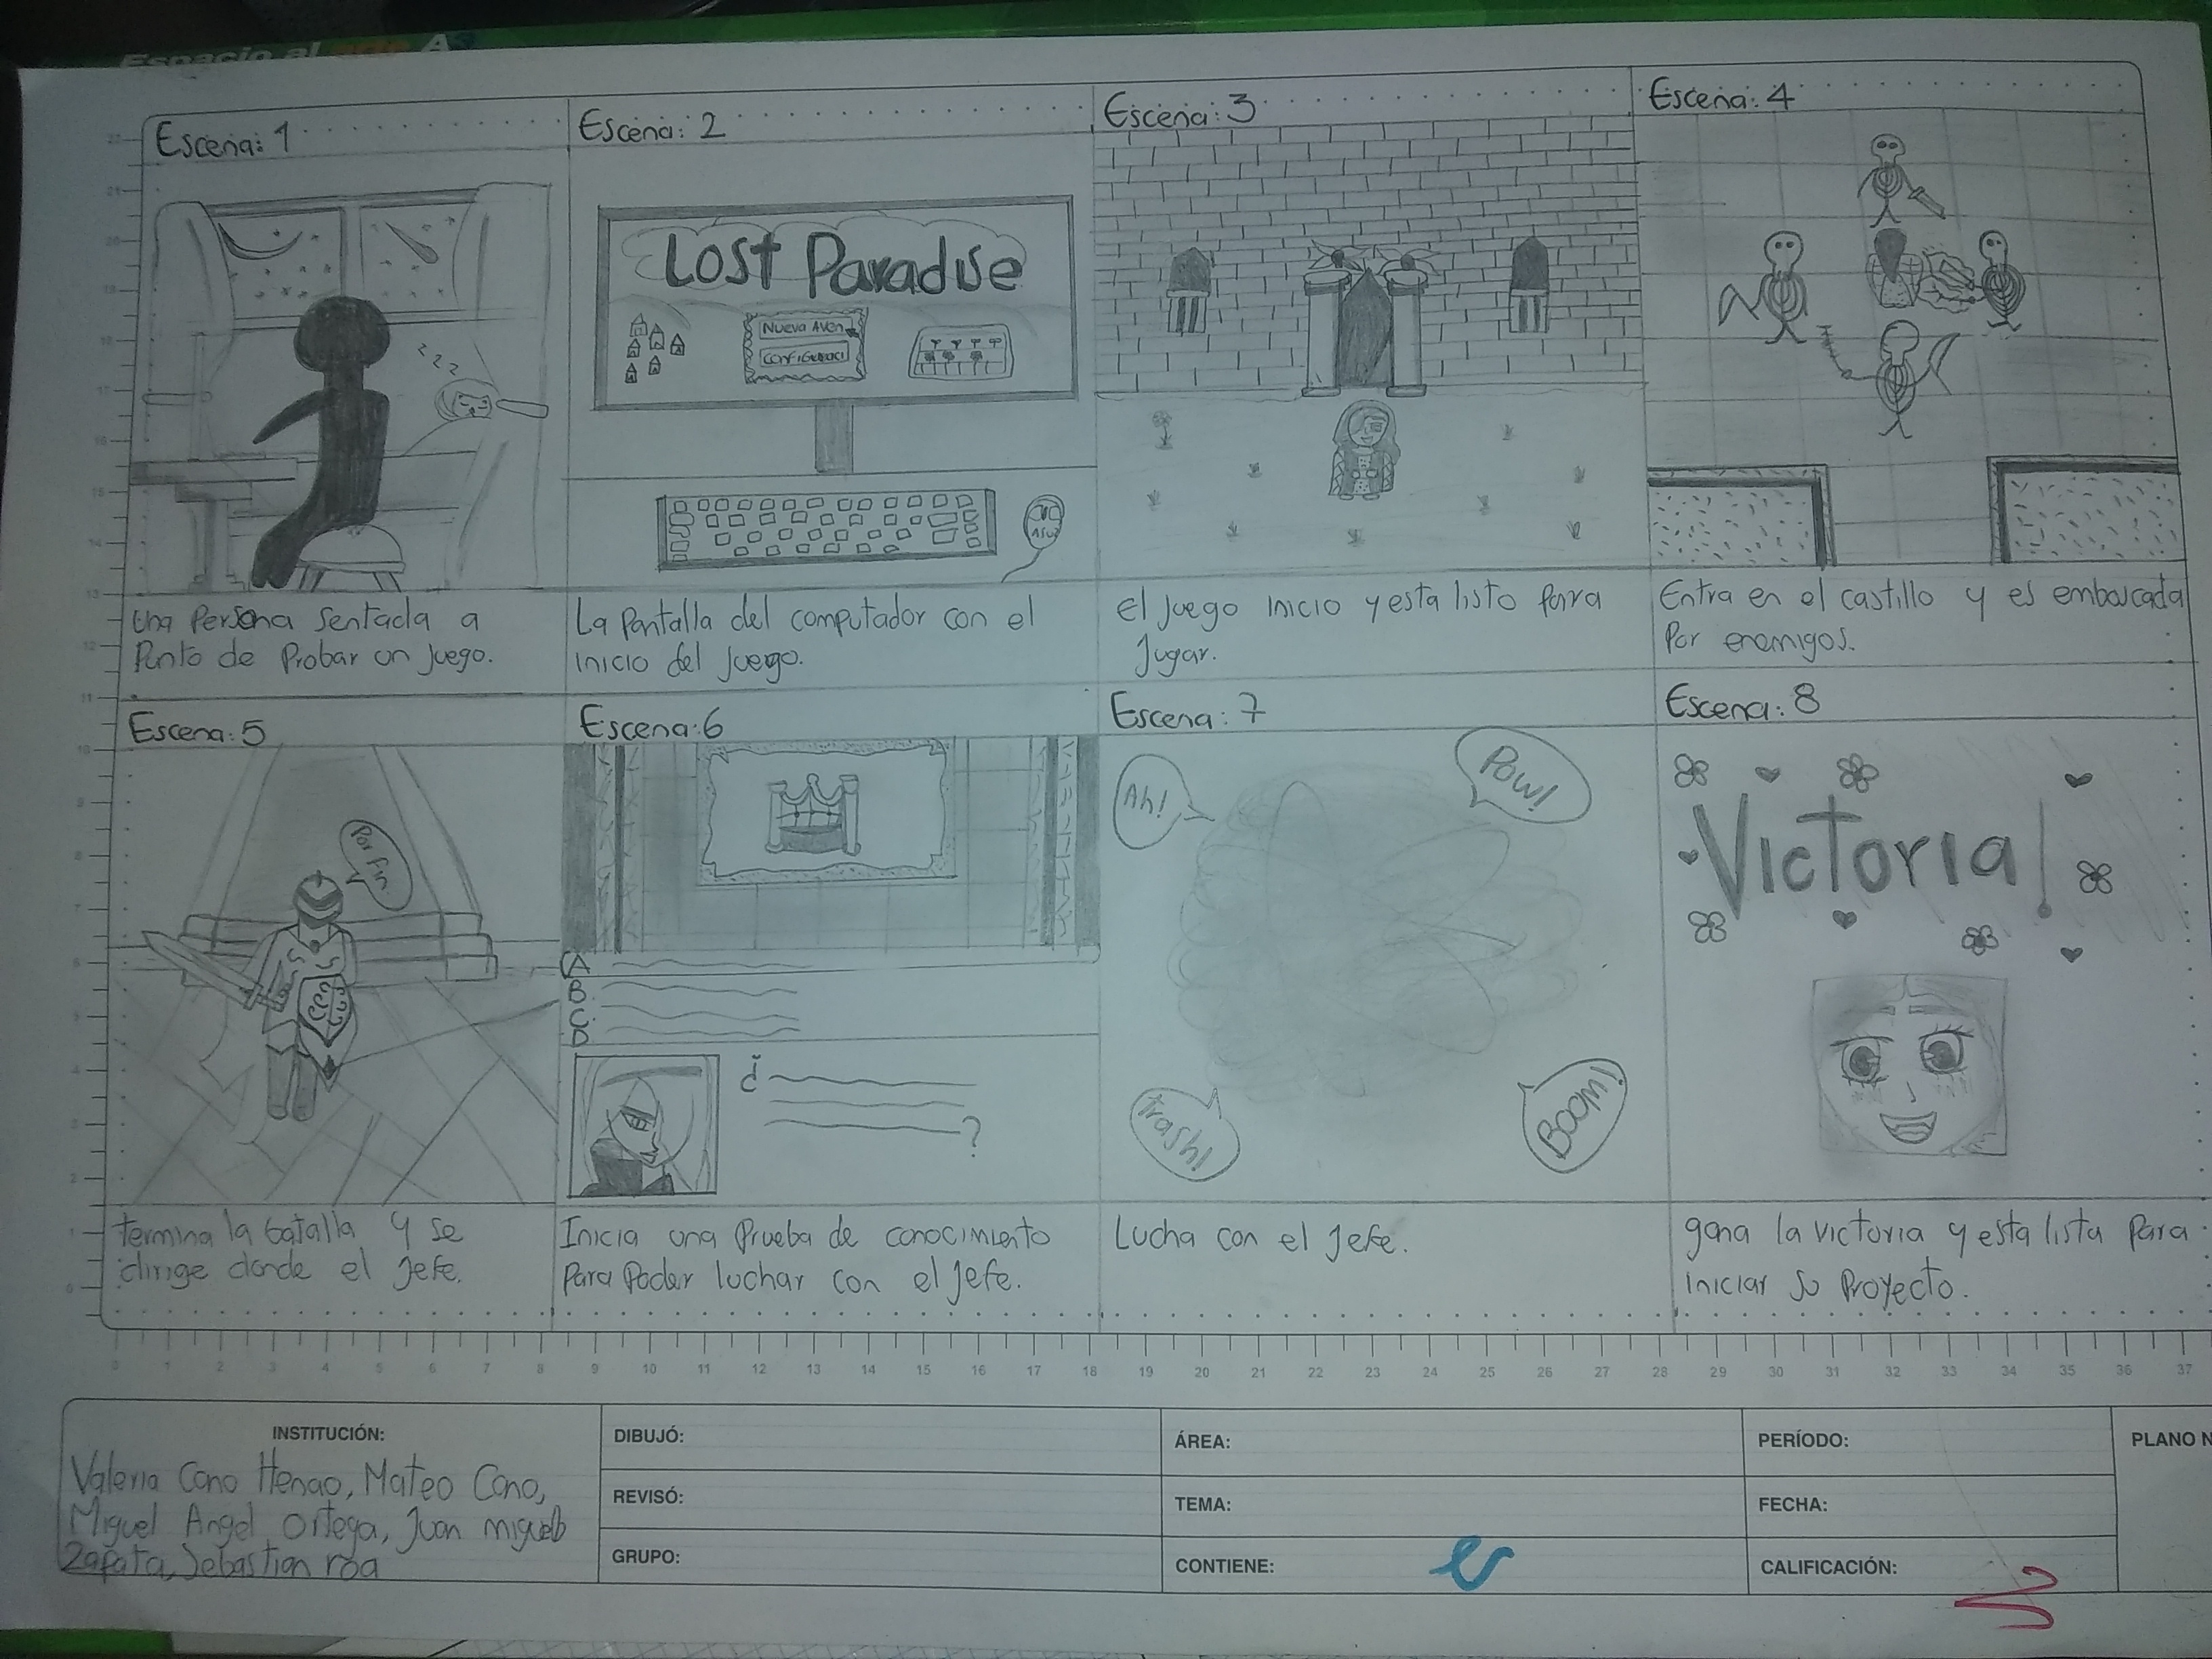 Espacio al arte A3
Escena: 1
zzz
Una Persona Sentada a
Punto de Probar un Juego.
Escena: 2
Lost Paradise
Nueva Aven
Configuraci
ASUS
La Pantalla del computador con el
inicio del Juego.
Escena: 3
el Juego inicio y esta listo para
Jugar.
Escena: 4
Entra en el castillo y es emboscada
Por enemigos.
Escena: 5
Por fin
termina la batalla y se
dirige donde el Jefe.
Escena: 6
A
B.
C.
D
¿
?
Inicia una Prueba de conocimiento
Para Poder luchar con el Jefe.
Escena: 7
Ah!
Pow!
trash!
BOOM!
Lucha con el Jefe.
Escena: 8
Victoria!
gana la victoria y esta lista para
iniciar su Proyecto.
22
21
20
19
18
17
16
15
14
13
12
11
10
9
8
7
6
5
4
3
2
1
0
0 1 2 3 4 5 6 7 8 9 10 11 12 13 14 15 16 17 18 19 20 21 22 23 24 25 26 27 28 29 30 31 32 33 34 35 36 37
INSTITUCIÓN:
Valeria Cano Henao, Mateo Cano,
Miguel Angel Ortega, Juan miguel
Zapata, Sebastian roa
DIBUJÓ:
REVISÓ:
GRUPO:
ÁREA:
TEMA:
CONTIENE:
PERÍODO:
FECHA:
CALIFICACIÓN:
PLANO N